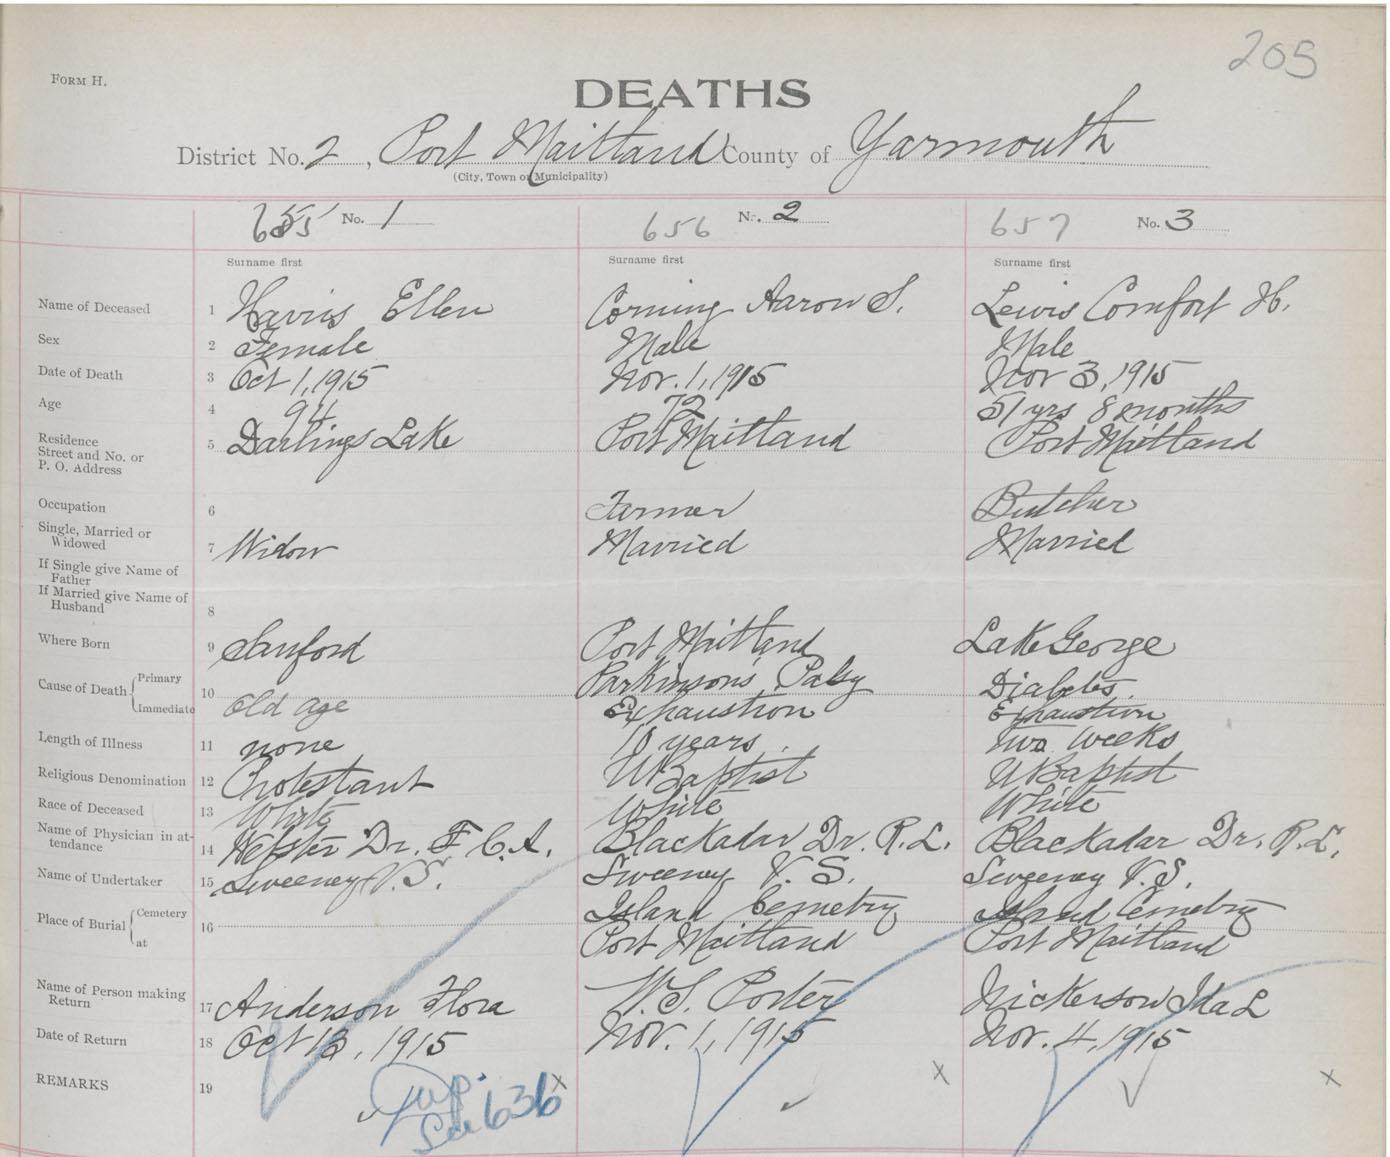 205
FORM H.
DEATHS
District No. 2, Port Maitland County of Yarmouth
(City, Town or Municipality)
655 No. 1 656 No. 2 657 No. 3
Surname first Surname first Surname first
Name of Deceased 1 Harris Ellen Corning Aaron S. Lewis Comfort H.
Sex 2 Female Male Male
Date of Death 3 Oct 1, 1915 Nov. 1, 1915 Nov 3, 1915
Age 4 94 72 51 yrs 8 months
Residence
Street and No. or
P. O. Address 5 Darlings Lake Port Maitland Port Maitland
Occupation 6 Farmer Butcher
Single, Married or
Widowed 7 Widow Married Married
If Single give Name of
Father
If Married give Name of
Husband 8
Where Born 9 Sanford Port Maitland Lake George
Cause of Death Primary 10 Parkinson's Palsy Diabetes.
Immediate Old age Exhaustion Exhaustion
Length of Illness 11 none 10 years. Two weeks
Religious Denomination 12 Protestant U Baptist U Baptist
Race of Deceased 13 White White White
Name of Physician in at-
tendance 14 Webster Dr. F. C. A. Blackadar Dr. R. L. Blackadar Dr. R. L.
Name of Undertaker 15 Sweeney V. S. Sweeney V. S. Sweeney V. S.
Place of Burial Cemetery 16 Island Cemetry Island Cemetry
at Port Maitland Port Maitland
Name of Person making
Return 17 Anderson Flora W. S. Porter Nickerson Ida L
Date of Return 18 Oct 13, 1915 Nov. 1, 1915 Nov. 4, 1915
REMARKS 19 Dup. x x x
See 636